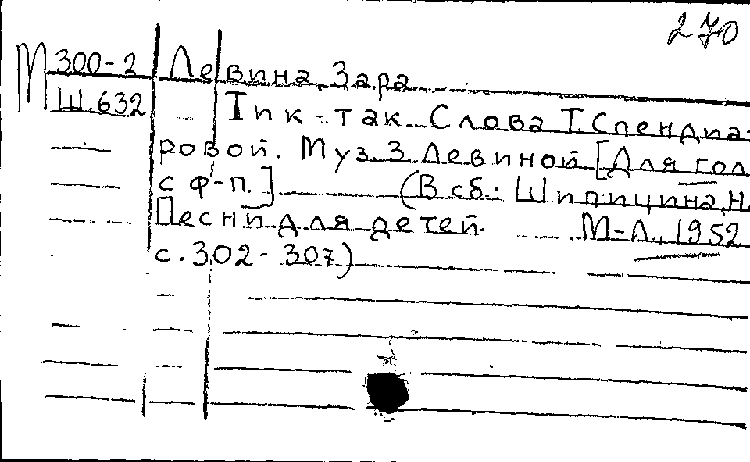 270
М 300-2 Левина, Зара
Ш 632 Тик-так. Слова Т. Спендиа-
ровой. Муз. З. Левиной [Для гол.
с ф-п.] (В сб.: Шипицина, Н.
Песни для детей. М-Л., 1952
с. 302-307)